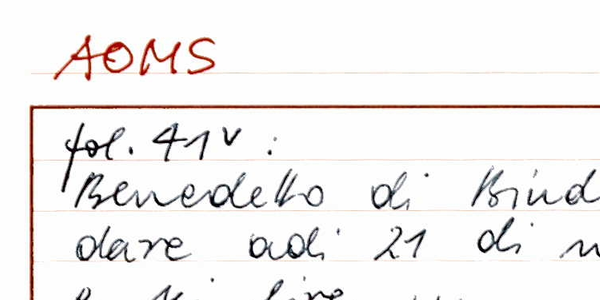 AOMS
fol. 41v :
Benedetto di Bind
dare adi 21 di